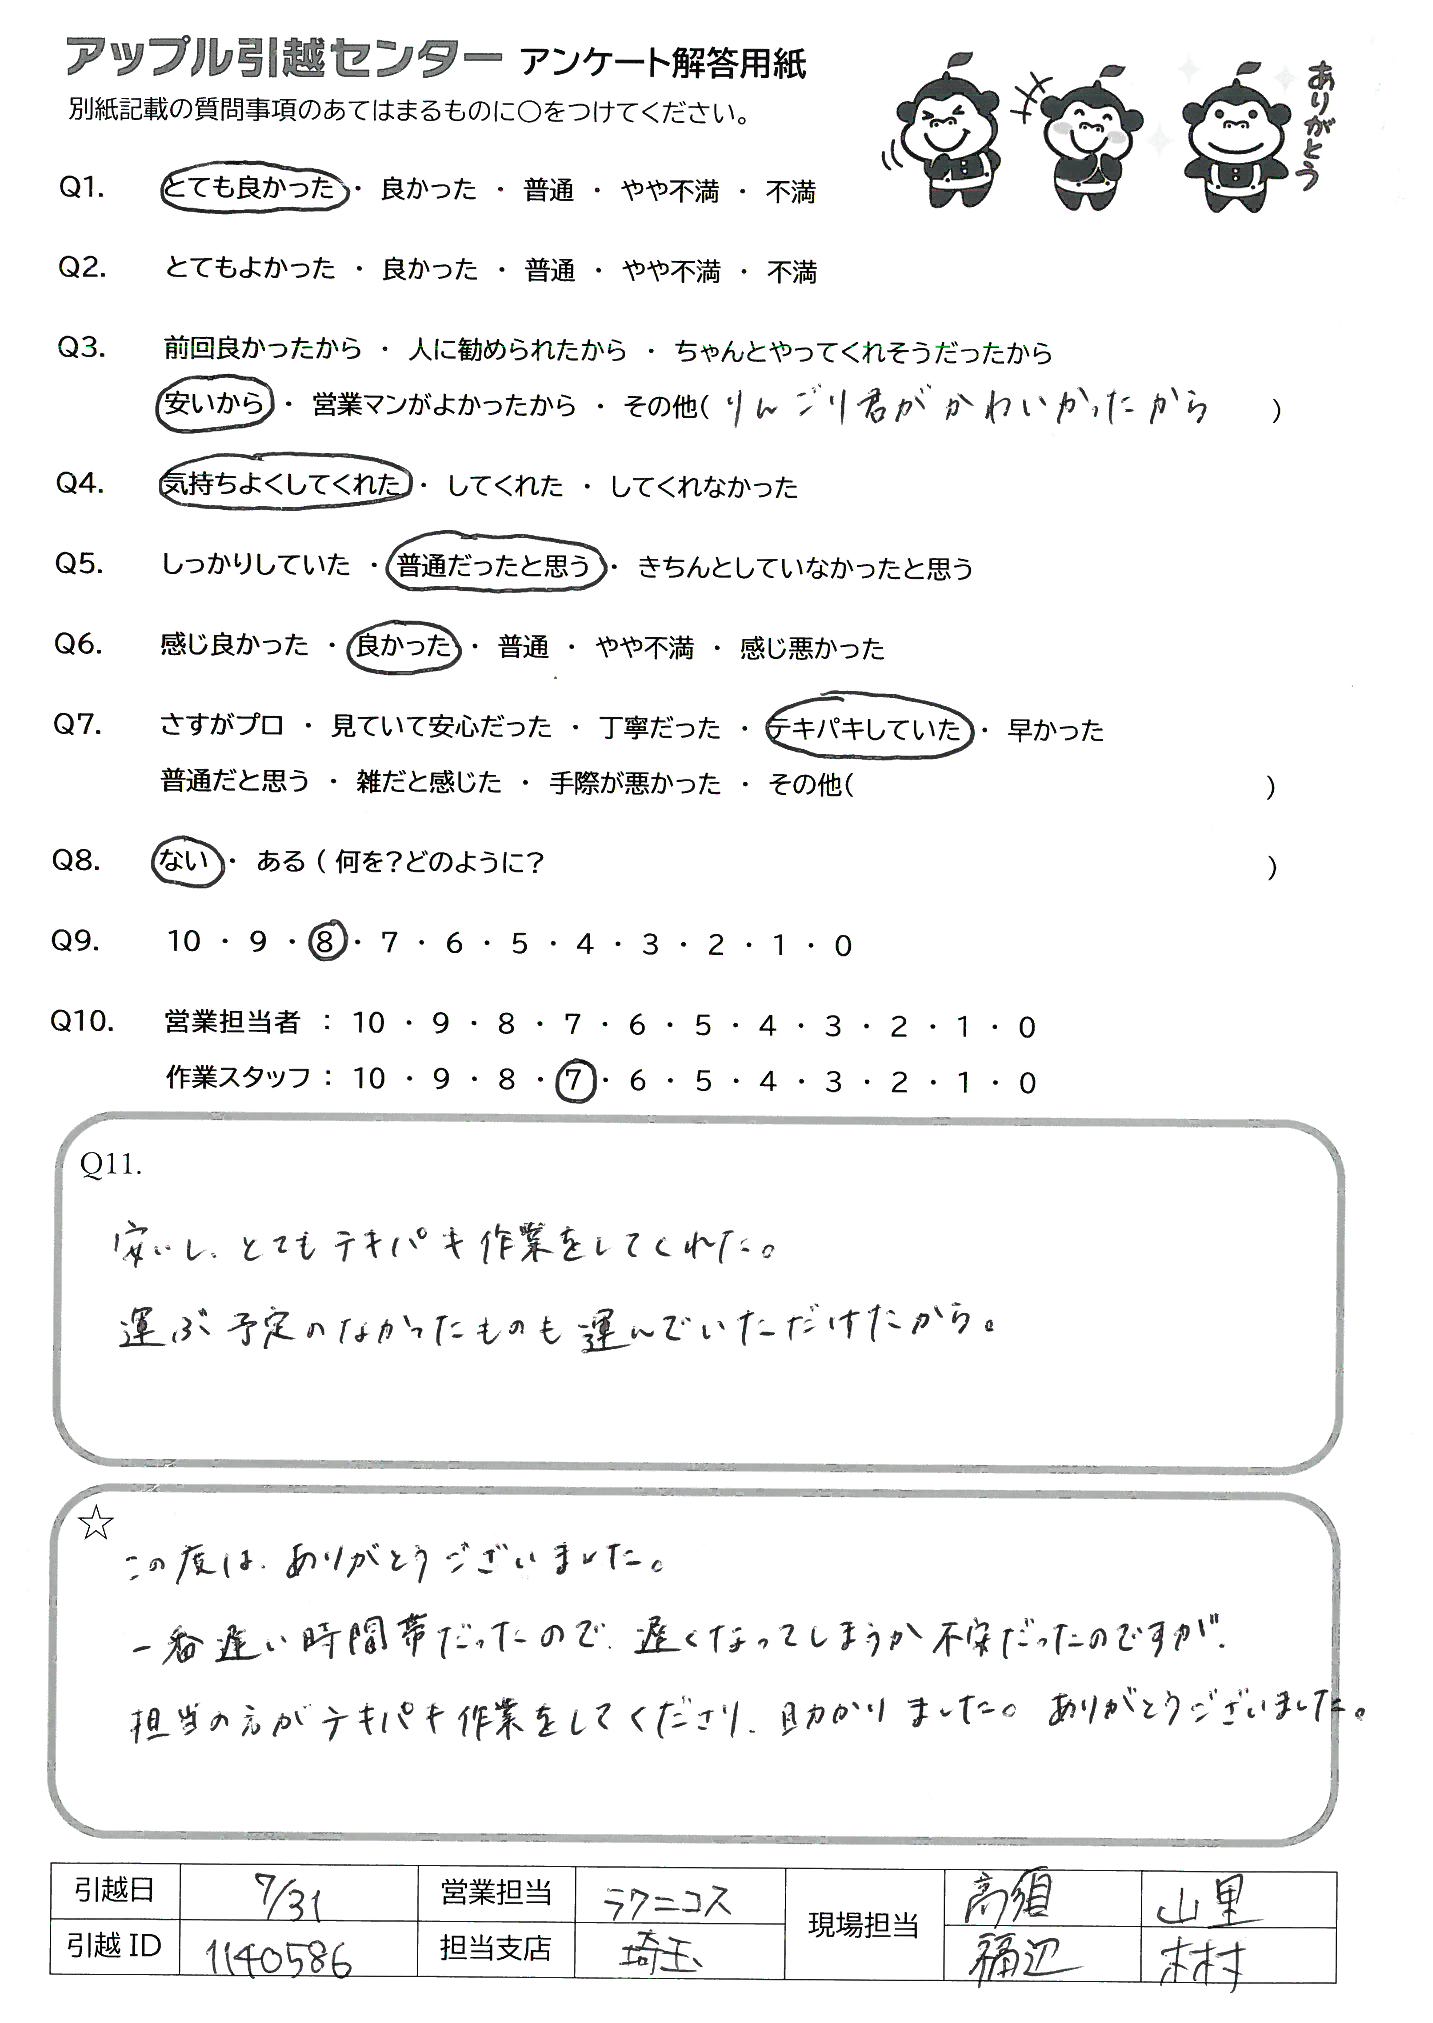 アップル引越センター アンケート解答用紙
別紙記載の質問事項のあてはまるものに〇をつけてください。
ありがとう
Q1. とても良かった ・ 良かった ・ 普通 ・ やや不満 ・ 不満
Q2. とてもよかった ・ 良かった ・ 普通 ・ やや不満 ・ 不満
Q3. 前回良かったから ・ 人に勧められたから ・ ちゃんとやってくれそうだったから
安いから ・ 営業マンがよかったから ・ その他( りんごり君がかわいかったから )
Q4. 気持ちよくしてくれた ・ してくれた ・ してくれなかった
Q5. しっかりしていた ・ 普通だったと思う ・ きちんとしていなかったと思う
Q6. 感じ良かった ・ 良かった ・ 普通 ・ やや不満 ・ 感じ悪かった
Q7. さすがプロ ・ 見ていて安心だった ・ 丁寧だった ・ テキパキしていた ・ 早かった
普通だと思う ・ 雑だと感じた ・ 手際が悪かった ・ その他( )
Q8. ない ・ ある ( 何を?どのように? )
Q9. 10 ・ 9 ・ 8 ・ 7 ・ 6 ・ 5 ・ 4 ・ 3 ・ 2 ・ 1 ・ 0
Q10. 営業担当者 : 10 ・ 9 ・ 8 ・ 7 ・ 6 ・ 5 ・ 4 ・ 3 ・ 2 ・ 1 ・ 0
作業スタッフ : 10 ・ 9 ・ 8 ・ 7 ・ 6 ・ 5 ・ 4 ・ 3 ・ 2 ・ 1 ・ 0
Q11.
安いし、とてもテキパキ作業をしてくれた。
運ぶ予定のなかったものも運んでいただけたから。
☆
この度は、ありがとうございました。
一番遅い時間帯だったので、遅くなってしまうか不安だったのですが、
担当の方がテキパキ作業をしてくださり、助かりました。ありがとうございました。
引越日 7/31 営業担当 ラクニコス 現場担当 高須 山里
引越ID 1140586 担当支店 埼玉 福辺 木村